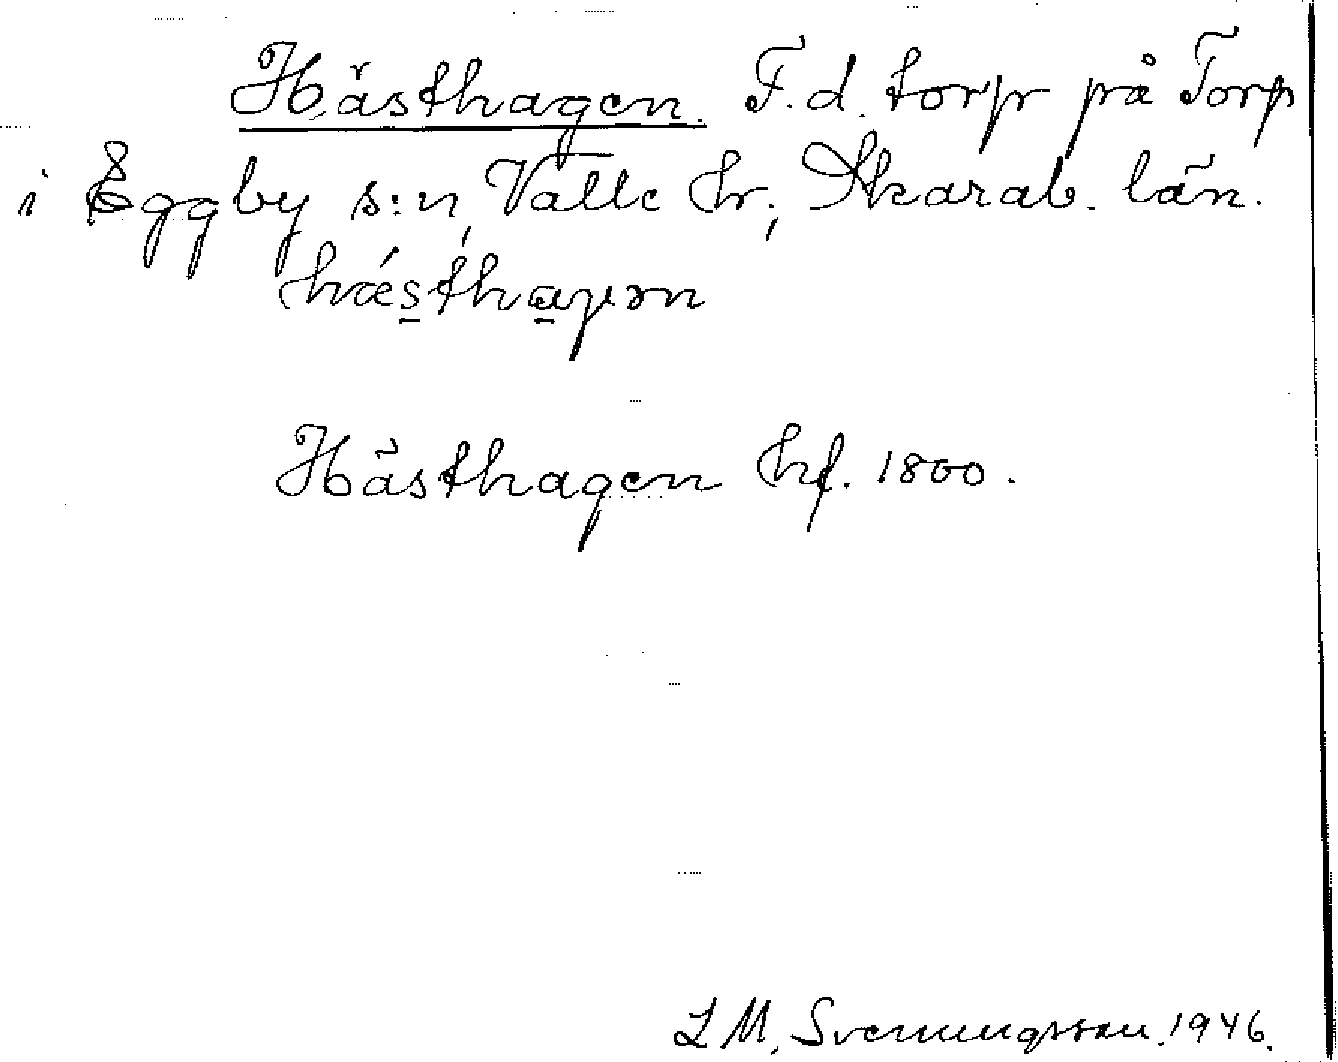 Hästhagen. F.d. torp på Torp
i Eggby s:n, Valle hr; Skarab. län.
hǽsthaɣən
Hästhagen hf. 1800.
L M, Svenungsson. 1946.